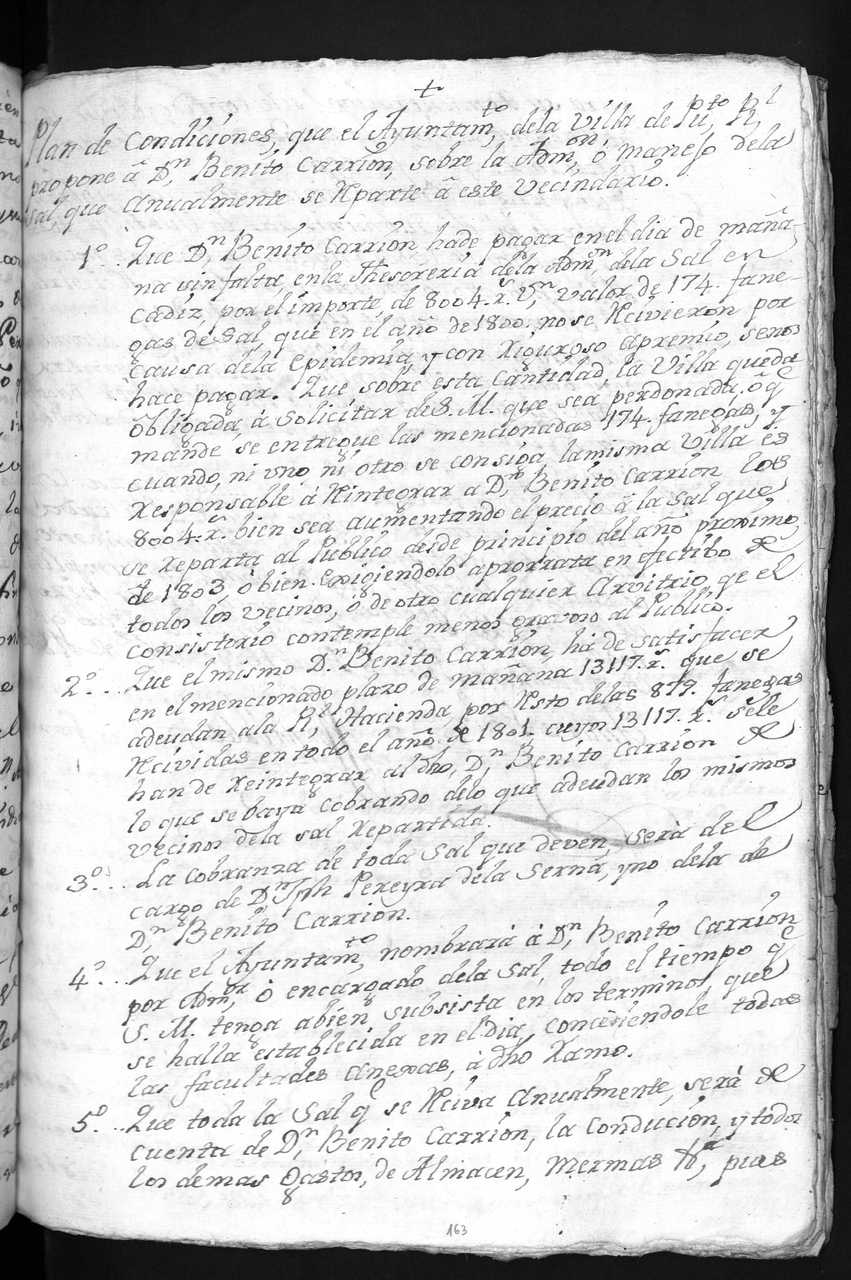 +
Plan de Condiciones, que el Ayuntam.to dela Villa de Pu.to R.l
propone â D.n Benito Carrion, sobre la Adm.on, ô manejo dela
sal, que Anualmente se Reparte â este Vecindario.
1º.. Que D.n Benito Carrion hade pagar en el dia de maña-
na sin falta, en la Thesoreria dela Adm.on dela Sal en
Cadiz, por el importe de 8004. r.s V.n valor de 174. fane-
gas de Sal, que en el año de 1800. no se Recivieron por
causa dela Epidemia, y con riguroso apremio, se nos
hace pagar. Que sobre esta Cantidad, la Villa queda
Obligada, â Solicitar de S. M. que sea perdonada, o q.e
mande se entregue las mencionadas 174. fanegas, y
cuando, ni uno ni otro se consiga, la misma Villa es
Responsable â Reintegrar a D.n Benito Carrion los
8004. r.s bien sea aumentando el precio â la Sal que
se Reparta al Publico desde principio del año proximo
de 1803, ò bien Exigiendolo aprorrata en efectibo de
todos los Vecinos, ò de otro cualquier Arvitrio qe el
Consistorio contemple menos gravoso al Publico.
2º... Que el mismo D.n Benito Carrion, hà de satisfacer
en el mencionado plazo de mañana 13117. r.s que se
adeudan ala R.l Hacienda por Resto delas 879. fanegas
Recividas en todo el año de 1801. cuyos 13117. r.s sele
han de Reintegrar al dho, D.n Benito Carrion de
lo que se baya Cobrando delo que adeudan los mismos
Vecinos dela sal Repartida.
3º... La Cobranza de toda Sal que deven, serà del
cargo de D.n Jph Pereyra dela Serna, y no dela de
D.n Benito Carrion.
4º... Que el Ayuntam.to nombrarà â D.n Benito Carrion
por Adm.or ò encargado dela Sal, todo el tiempo q.e
S. M. tenga abien subsista en los terminos, que
se halla establecida en el dia, concediendole todas
las facultades Anexas, â dho Ramo.
5º... Que toda la Sal q.e se Reciva Anualmente, serà de
cuenta de D.n Benito Carrion, la Conducion, y todos
los demas Gastos, de Almacen, Mermas &.a, pues
163